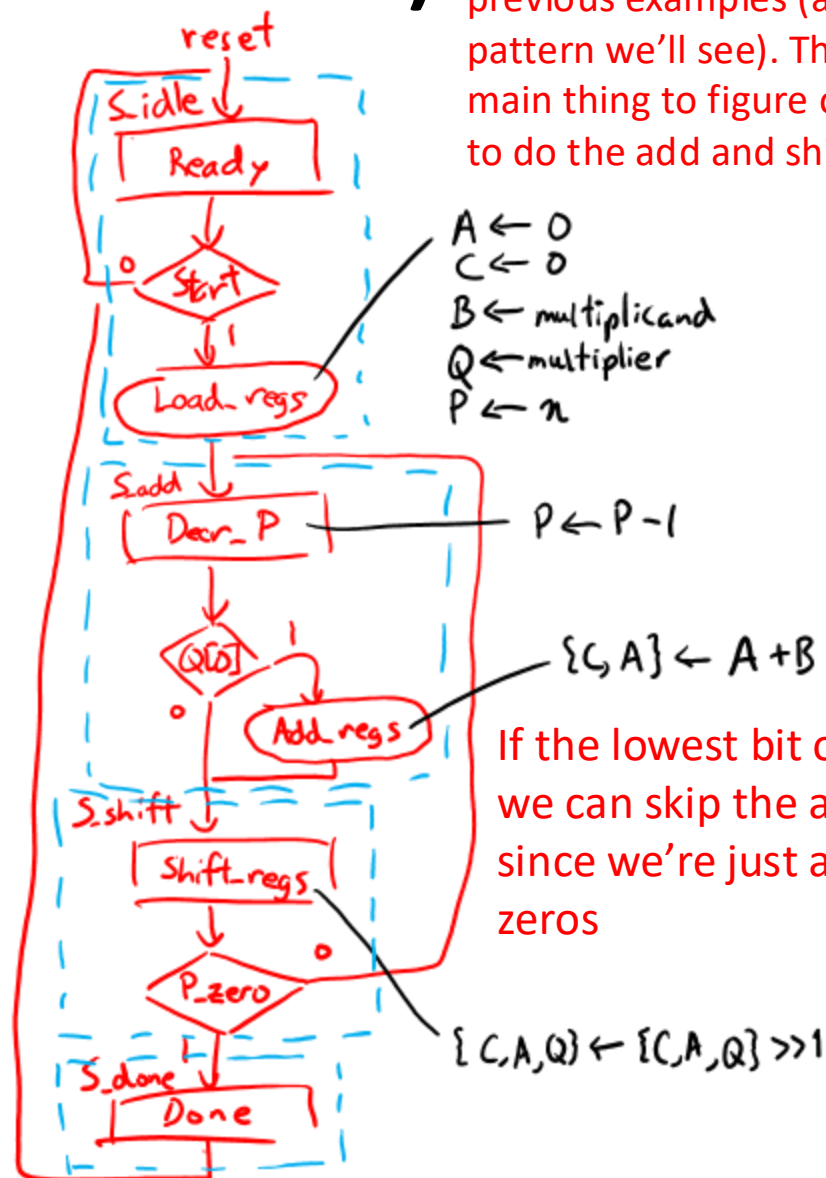 previous examples (a
pattern we'll see). Th
main thing to figure
to do the add and sh
reset
S_idle
Ready
0
Start
1
Load_regs
A ← 0
C ← 0
B ← multiplicand
Q ← multiplier
P ← n
S_add
Decr_P
P ← P - 1
Q[0]
1
0
Add_regs
{C, A} ← A + B
If the lowest bit
we can skip the a
since we're just a
zeros
S_shift
Shift_regs
P_zero
0
1
{C,A,Q} ← {C,A,Q} >>1
S_done
Done